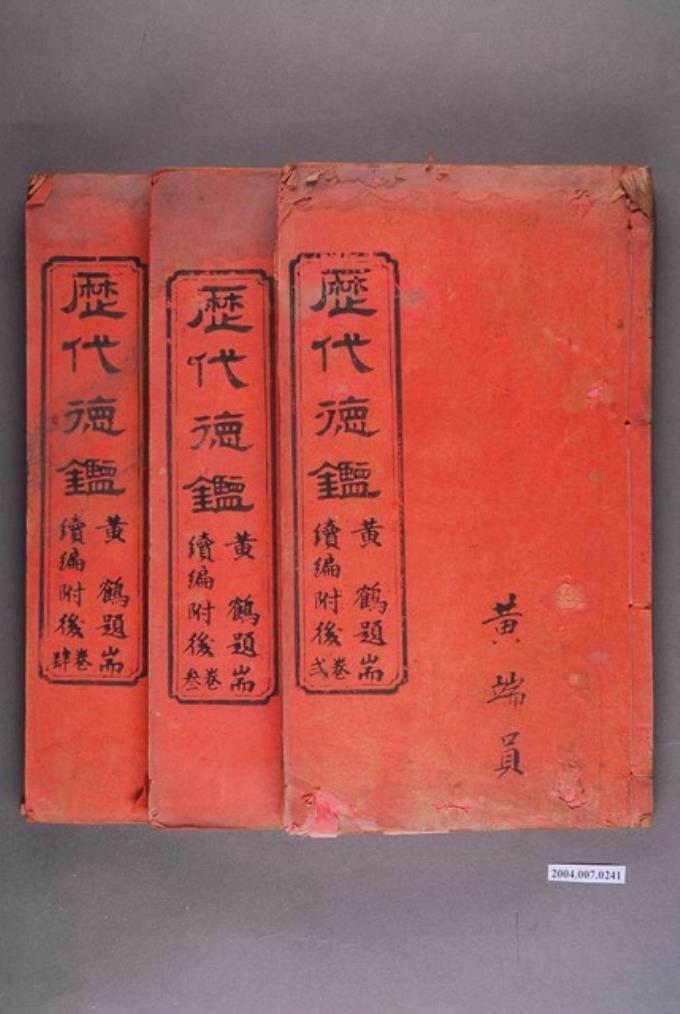 歷代德鑑
黃鶴題耑
續編附後
卷弍
黃端員
歷代德鑑
黃鶴題耑
續編附後
卷叁
歷代德鑑
黃鶴題耑
續編附後
卷肆
2004.007.0241